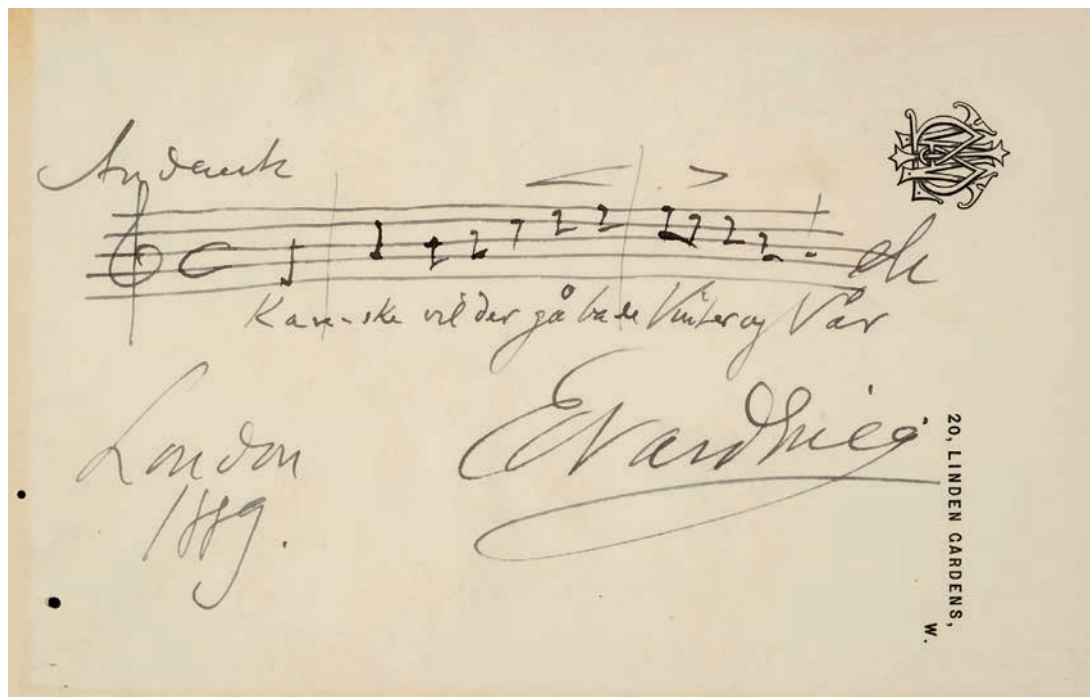 Andante
etc
Kan-ske vil der gå både Vinter og Vår
London
1889.
Edvard Grieg
20, LINDEN GARDENS,
W.